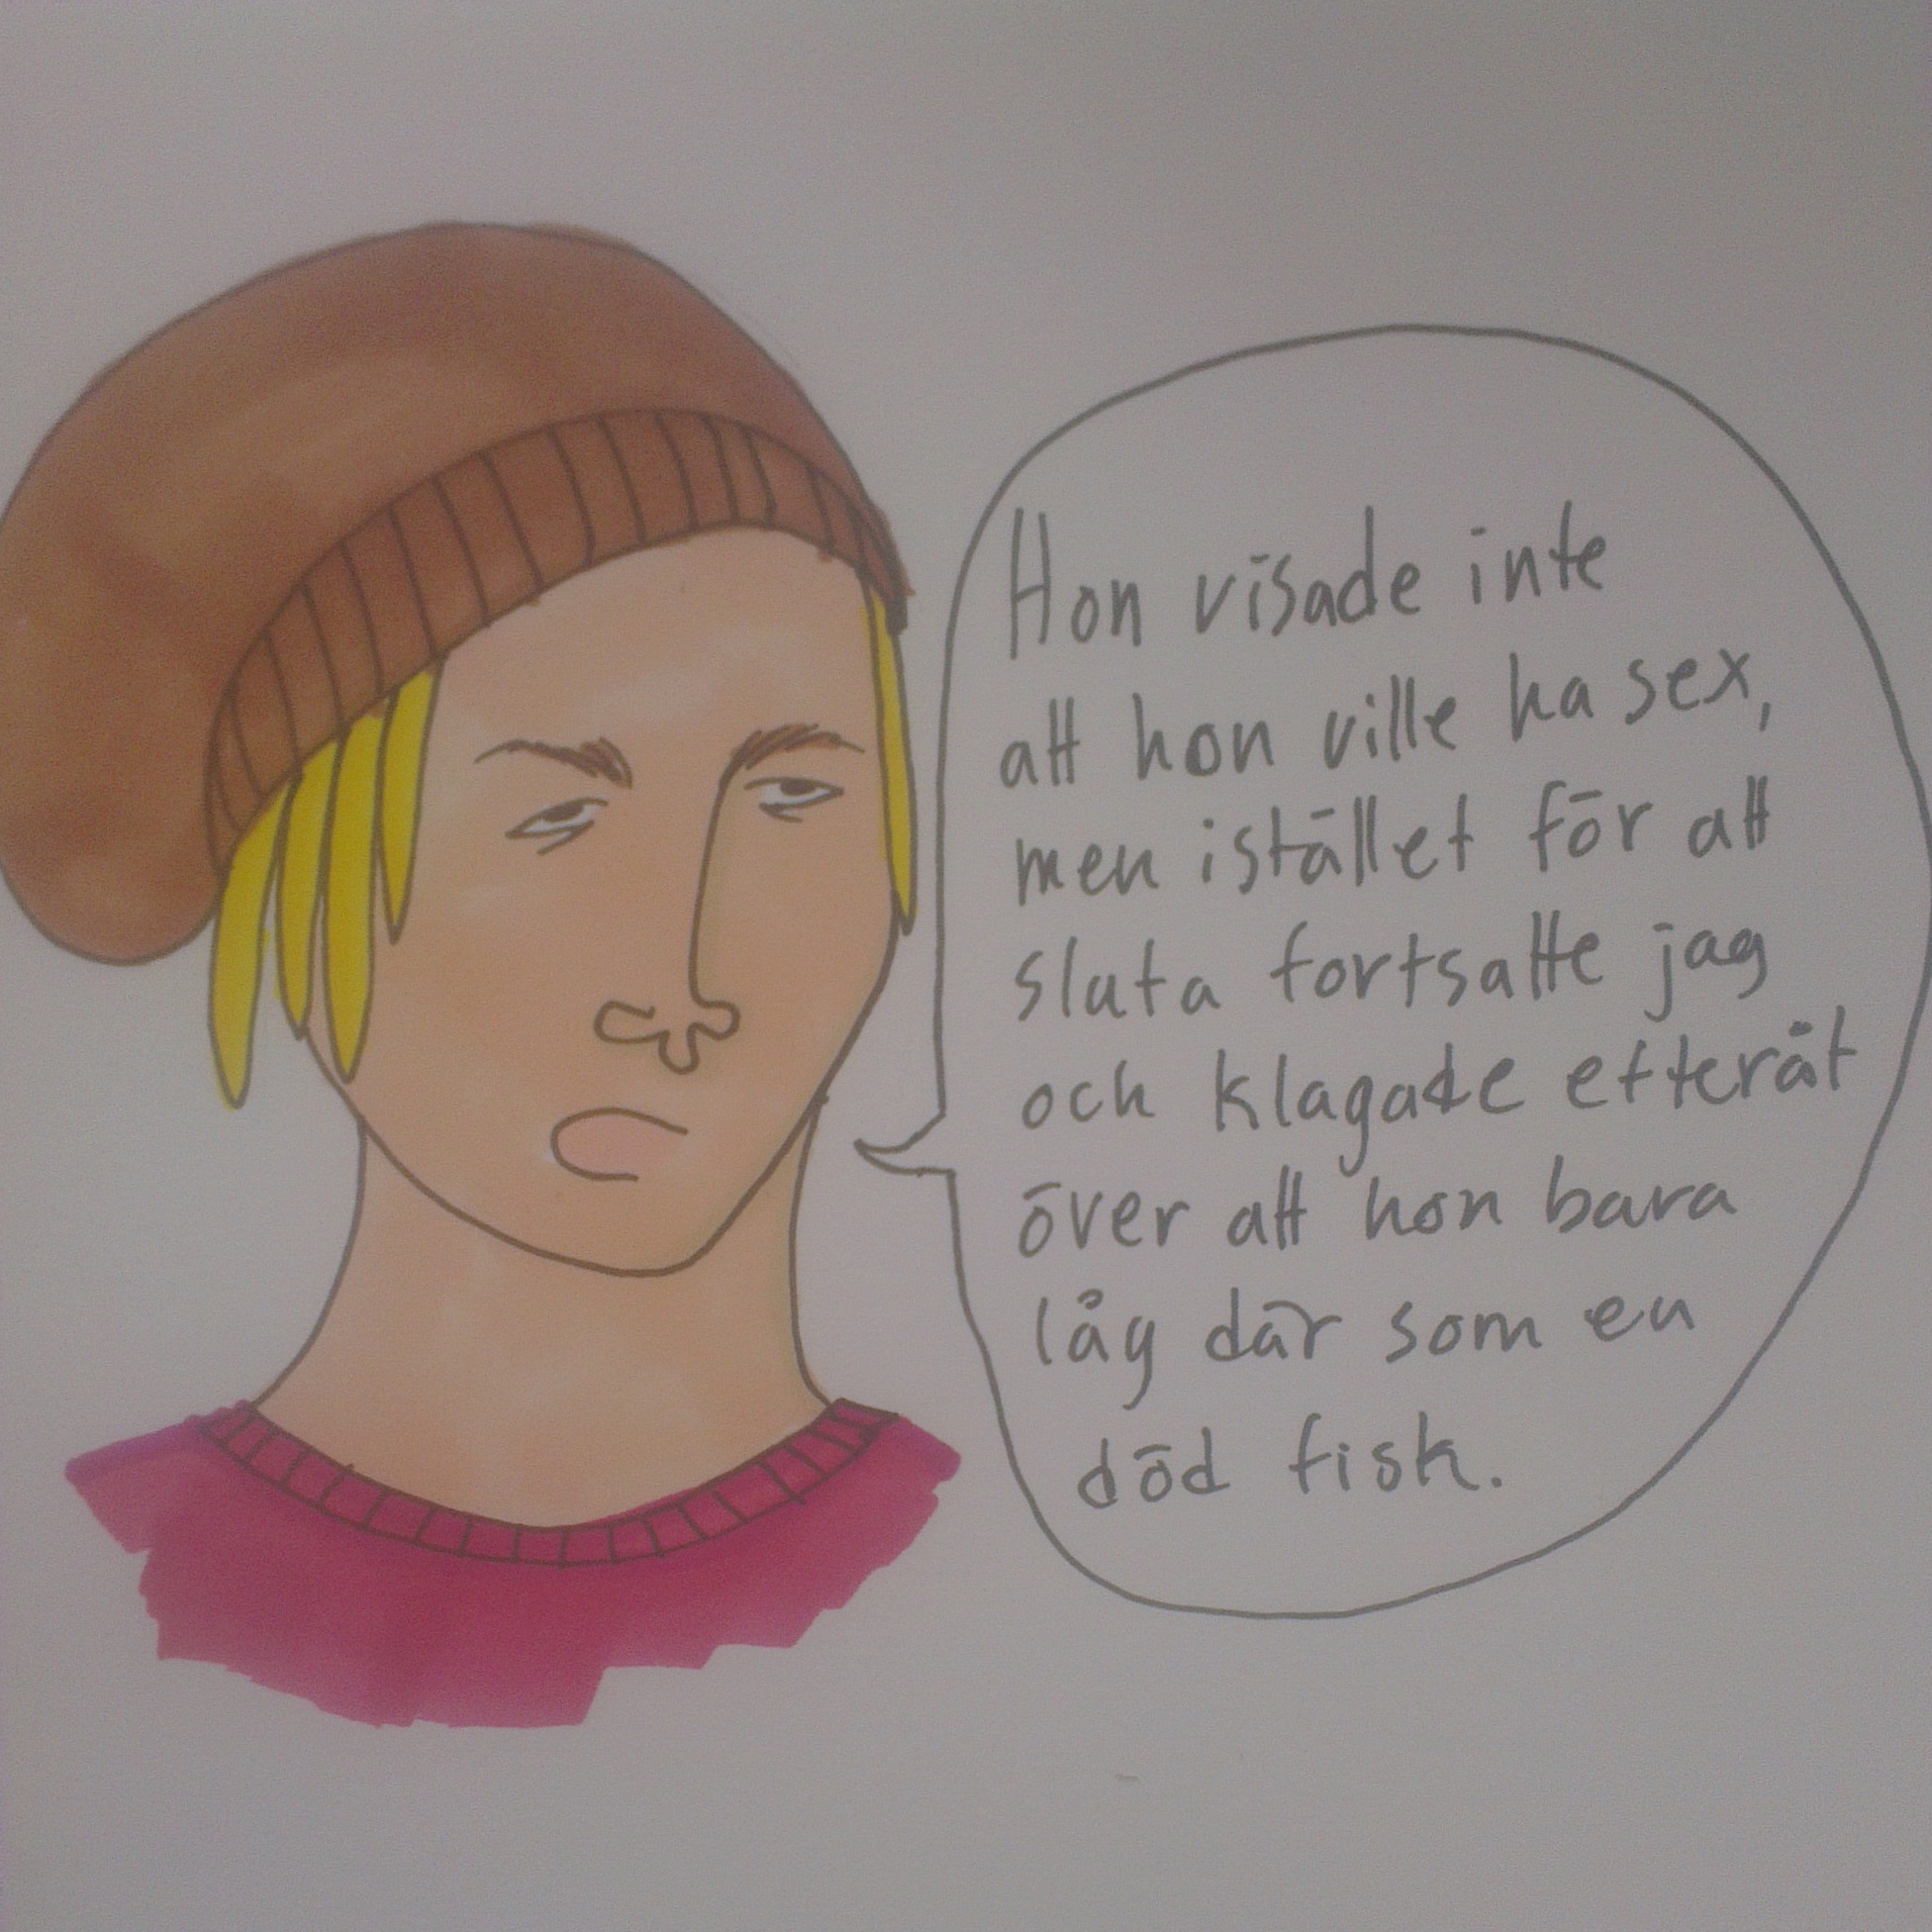 Hon visade inte
att hon ville ha sex,
men istället för att
sluta fortsatte jag
och klagade efteråt
över att hon bara
låg där som en
död fisk.